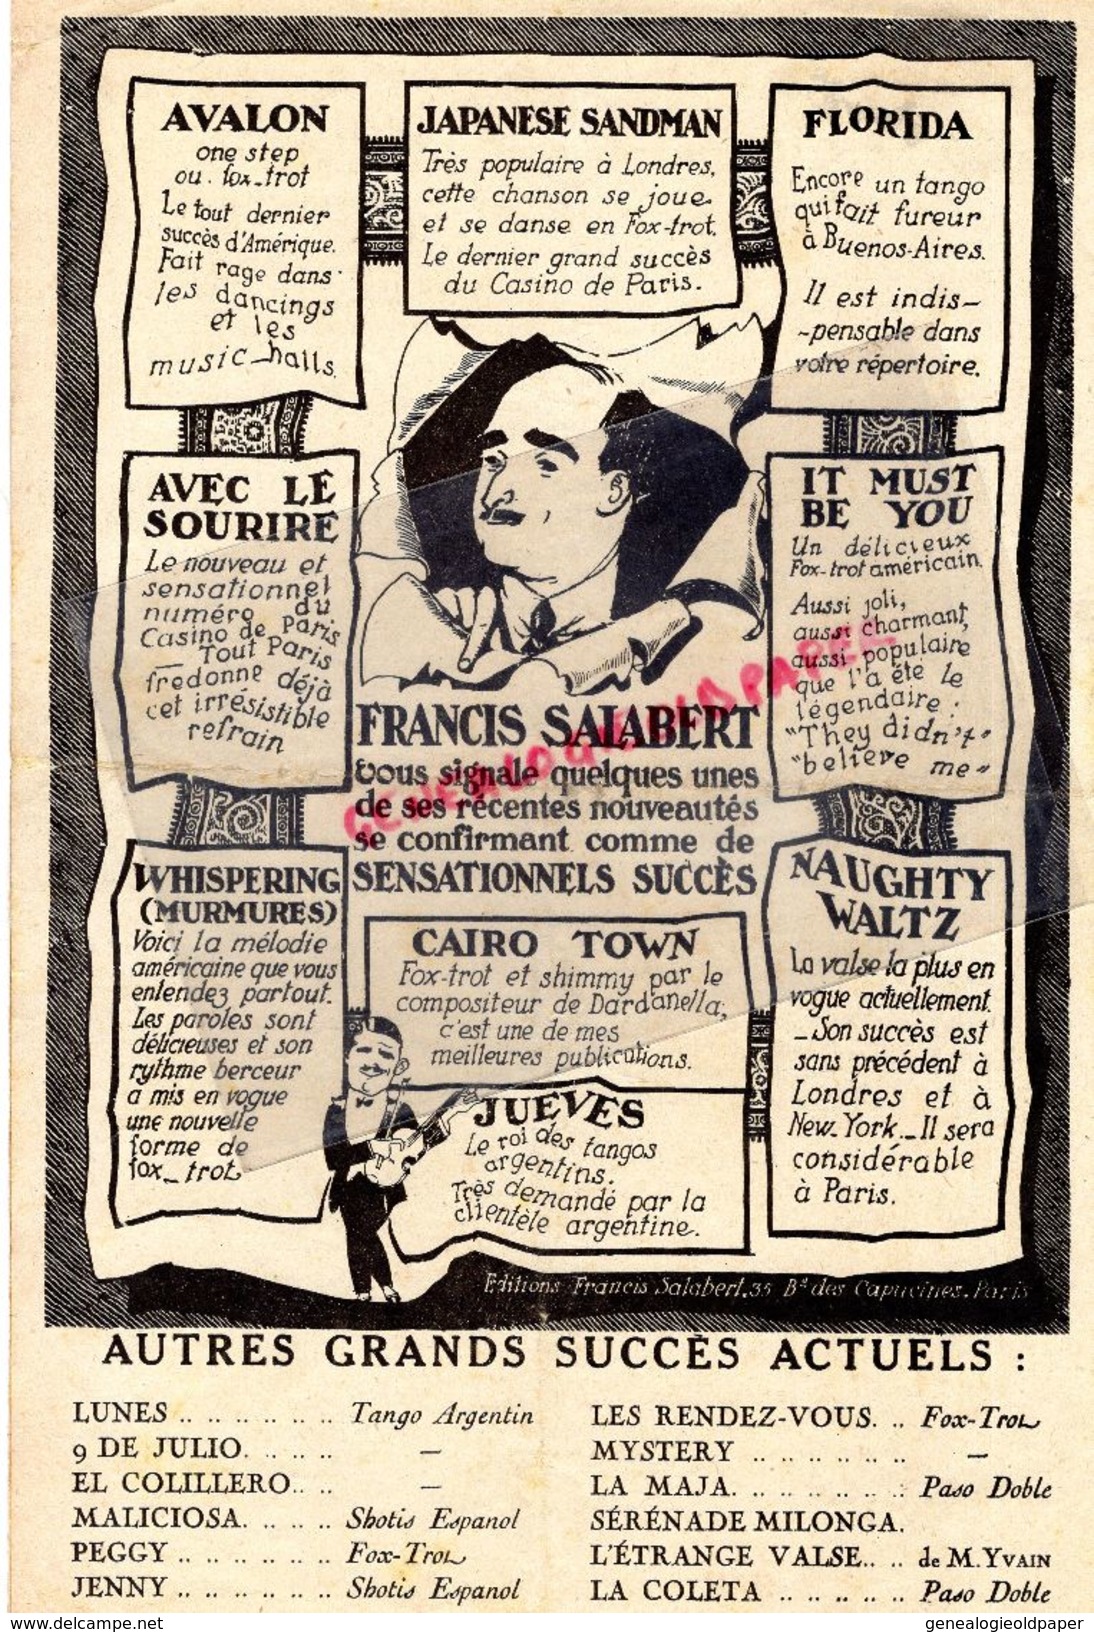 AVALON
one step
ou. fox-trot
Le tout dernier
succès d'Amérique.
Fait rage dans
les dancings
et les
music-halls.
JAPANESE SANDMAN
Très populaire à Londres,
cette chanson se joue
et se danse en Fox-trot.
Le dernier grand succès
du Casino de Paris.
FLORIDA
Encore un tango
qui fait fureur
à Buenos-Aires.
Il est indis-
-pensable dans
votre répertoire.
AVEC LE
SOURIRE
Le nouveau et
sensationnel
numéro du
Casino de Paris
_ Tout Paris
fredonne déjà
cet irrésistible
refrain
IT MUST
BE YOU
Un délicieux
Fox-trot américain.
Aussi joli,
aussi charmant,
aussi populaire
que l'a été le
légendaire :
"They didn't"
"believe me"
FRANCIS SALABERT
vous signale quelques unes
de ses récentes nouveautés
se confirmant comme de
SENSATIONNELS SUCCÈS
WHISPERING
(MURMURES)
Voici la mélodie
américaine que vous
entendez partout.
Les paroles sont
délicieuses et son
rythme berceur
a mis en vogue
une nouvelle
forme de
fox_trot
CAIRO TOWN
Fox-trot et shimmy par le
compositeur de Dardanella;
c'est une de mes
meilleures publications.
JUEVES
Le roi des tangos
argentins.
Très demandé par la
clientèle argentine.
NAUGHTY
WALTZ
La valse la plus en
vogue actuellement
_ Son succès est
sans précédent à
Londres et à
New-York._ Il sera
considérable
à Paris.
Editions Francis Salabert. 35 Bd des Capucines. Paris
AUTRES GRANDS SUCCÈS ACTUELS :
LUNES .. .. .. .. .. .. Tango Argentin
9 DE JULIO. .. .. .. —
EL COLILLERO.. .. —
MALICIOSA. .. .. .. Shotis Espanol
PEGGY .. .. .. .. .. .. Fox-Trot
JENNY .. .. .. .. .. .. Shotis Espanol
LES RENDEZ-VOUS. .. Fox-Trot
MYSTERY .. .. .. .. .. .. —
LA MAJA. .. .. .. .. .. .. Paso Doble
SÉRÉNADE MILONGA.
L'ÉTRANGE VALSE.. .. de M. YVAIN
LA COLETA .. .. .. .. .. Paso Doble
www.delcampe.net
genealogieoldpaper